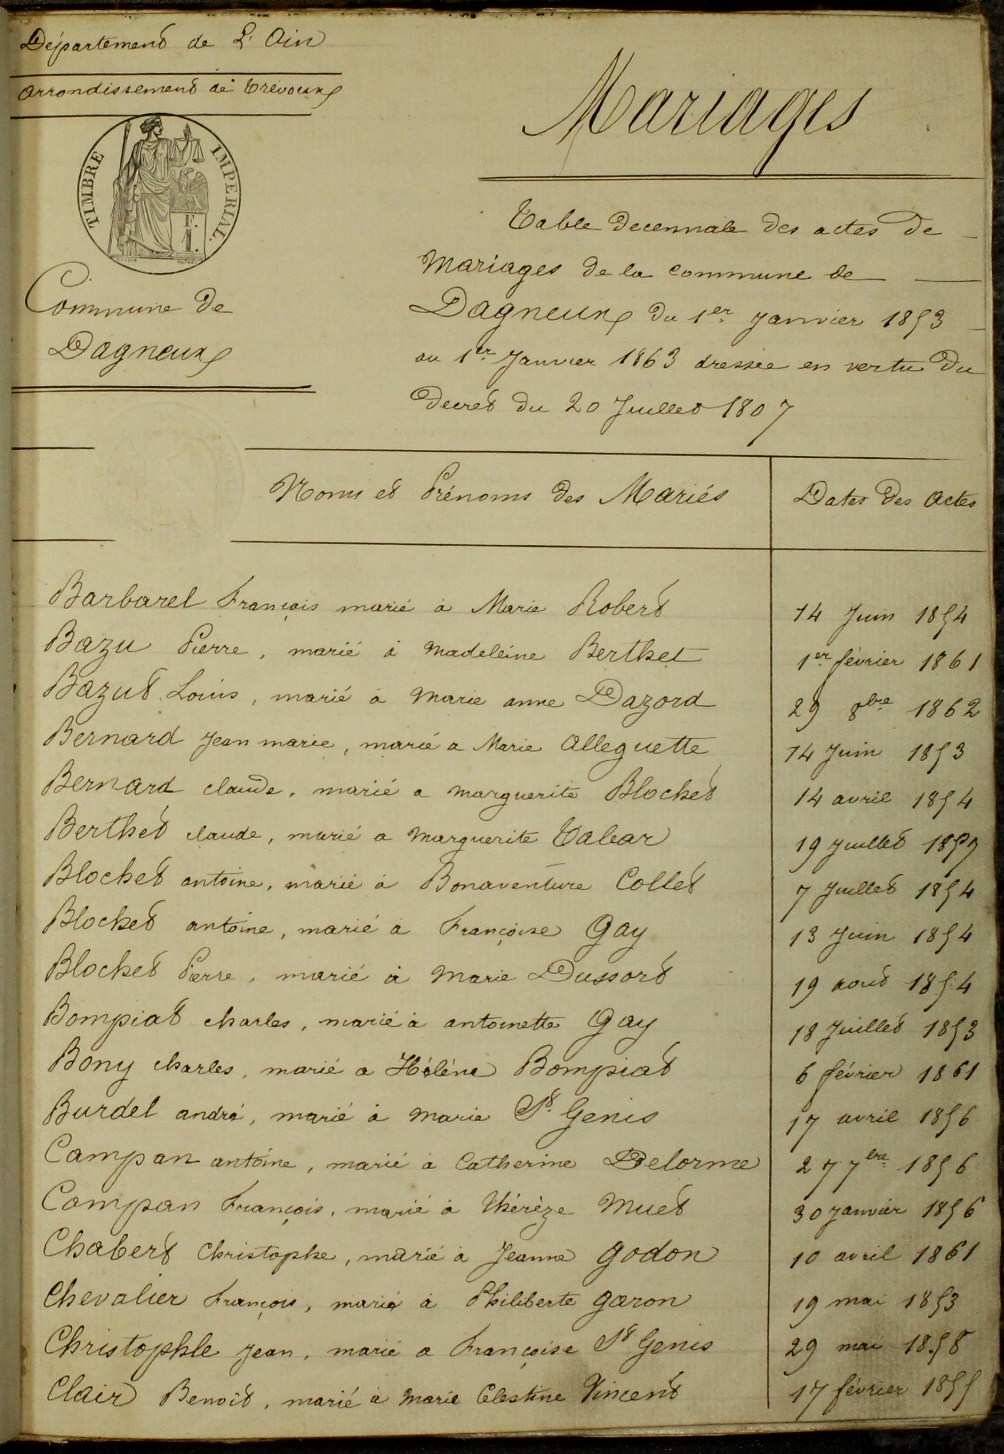 Département de L'Ain
Arrondissement de Trévoux
TIMBRE IMPERIAL.
Commune de
Dagneux
Mariages
Table decennale des actes de
Mariages de la commune de
Dagneux du 1er Janvier 1853
au 1er Janvier 1863 dressée en vertu du
Decret du 20 Juillet 1807
Noms et Prénoms des Mariés Dates des Actes
Barbarel François marié à Marie Robert 14 Juin 1854
Bazu Pierre, marié à Madeleine Berthet 1er février 1861
Bazut Louis, marié à Marie anne Dazord 29 8bre 1862
Bernard Jean marie, marié a Marie Alleguette 14 Juin 1853
Bernard claude, marié a marguerite Blochet 14 avril 1854
Berthet claude, marié a Marguerite 19 Juillet 1859
Blochet antoine, marié à Bonaventure Collet 7 Juillet 1854
Blochet antoine, marié à Françoise Gay 13 Juin 1854
Blochet Pierre, marié à Marie Dussort 19 aout 1854
Bompiat charles, marié à antoinette Gay 18 Juillet 1853
Bony charles, marié a Hélène Bompiat 6 février 1861
Burdel andré, marié à Marie St Genis 17 avril 1856
Campan antoine, marié à Catherine Delorme 27 7bre 1856
Compan François, marié à Thérèze Muet 30 Janvier 1856
Chabert Christophe, marié à Jeanne Godon 10 avril 1861
Chevalier François, marié à Philiberte Garon 19 mai 1853
Christophle Jean, marié a Françoise St Genis 29 mai 1858
Clair Benoit, marié à Marie Célestine Vincent 17 février 1855